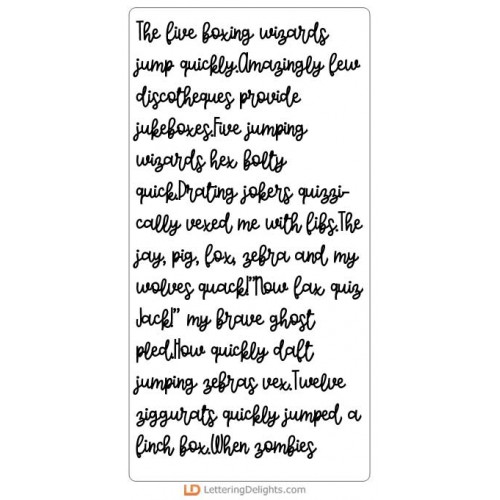 The five boxing wizards
jump quickly.Amazingly few
discotheques provide
jukeboxes.Five jumping
wizards hex bolty
quick.Prating jokers quizzi-
cally vexed me with fibs.The
jay, pig, fox, zebra and my
wolves quack!"Now fax quiz
Jack!" my brave ghost
pled.How quickly daft
jumping zebras vex.Twelve
ziggurats quickly jumped a
finch box.When zombies
LD LetteringDelights.com